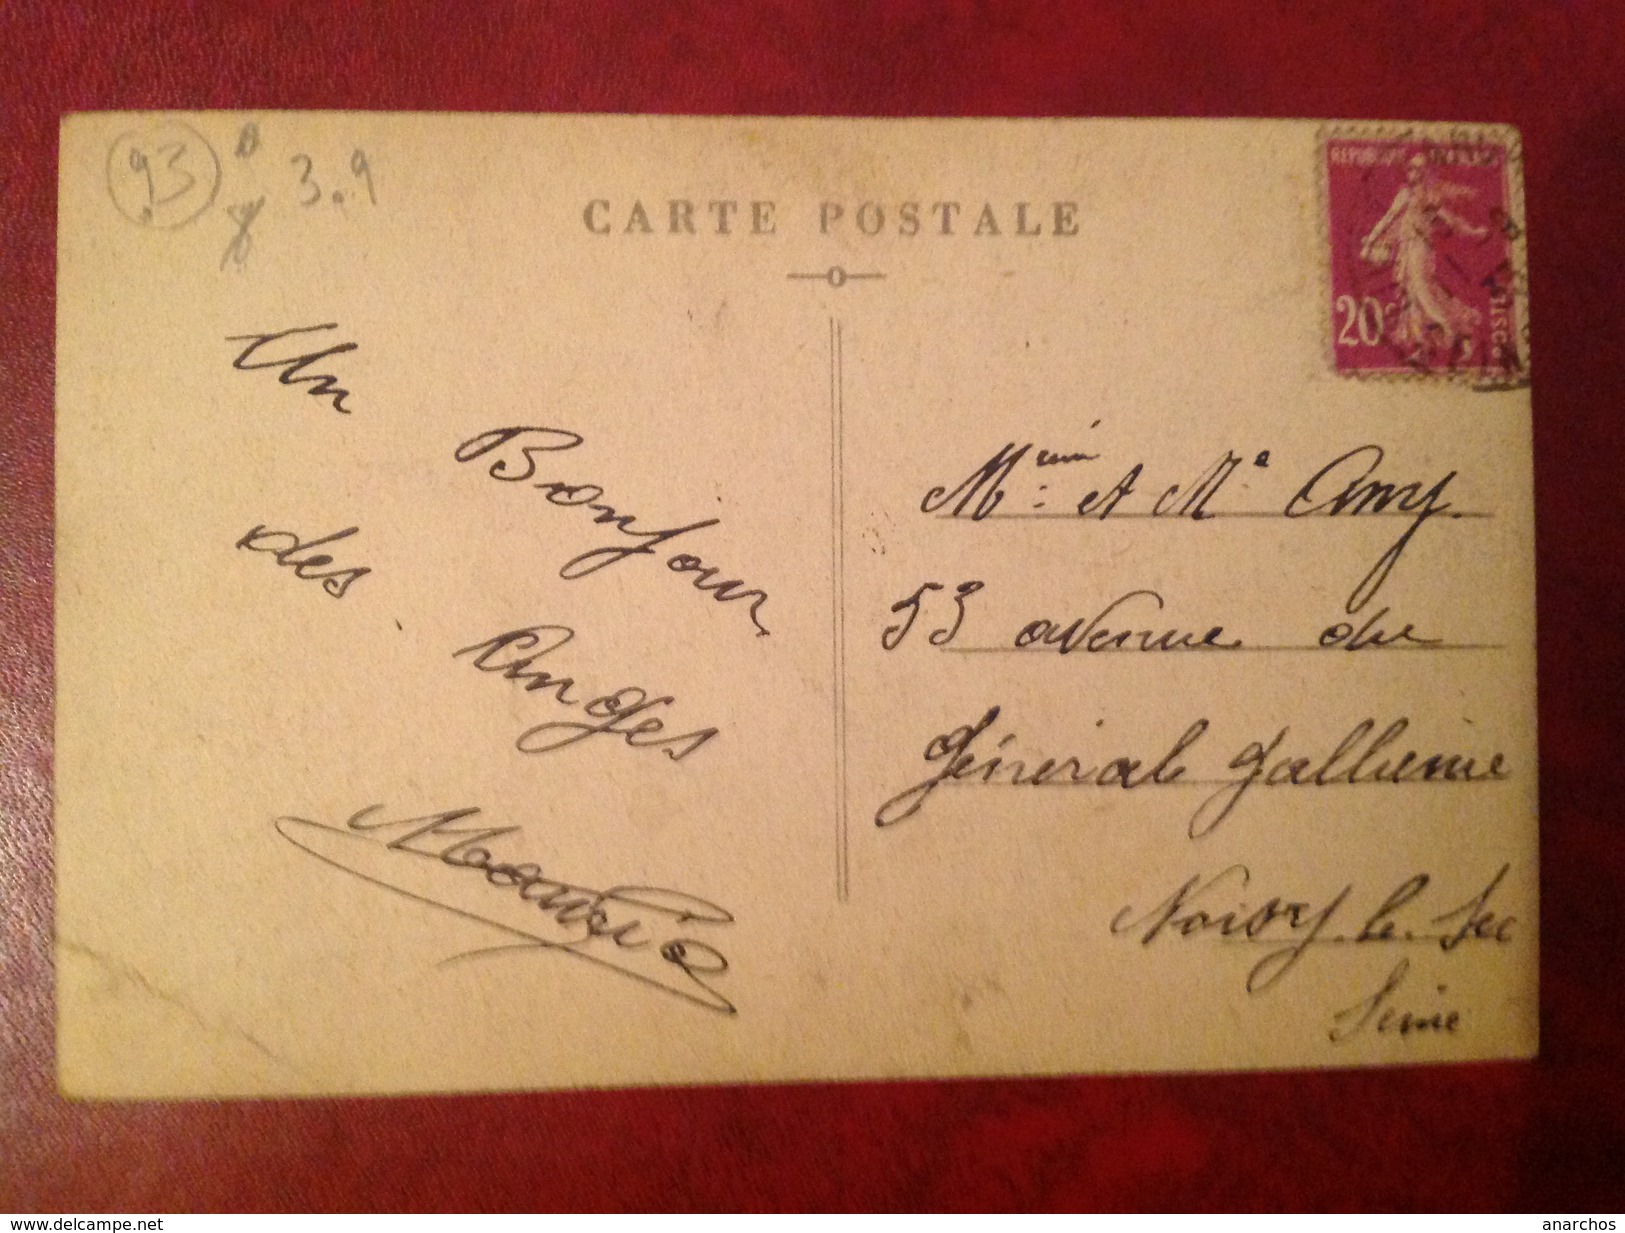 93 3.9
CARTE POSTALE
REPUBLIQUE FRANCAISE
20c
POSTES
Un
Bonjour
des
Anges
et Me Amy.
53 avenue du
Général Gallieni
Noisy le Sec
Seine
www.delcampe.net
anarchos